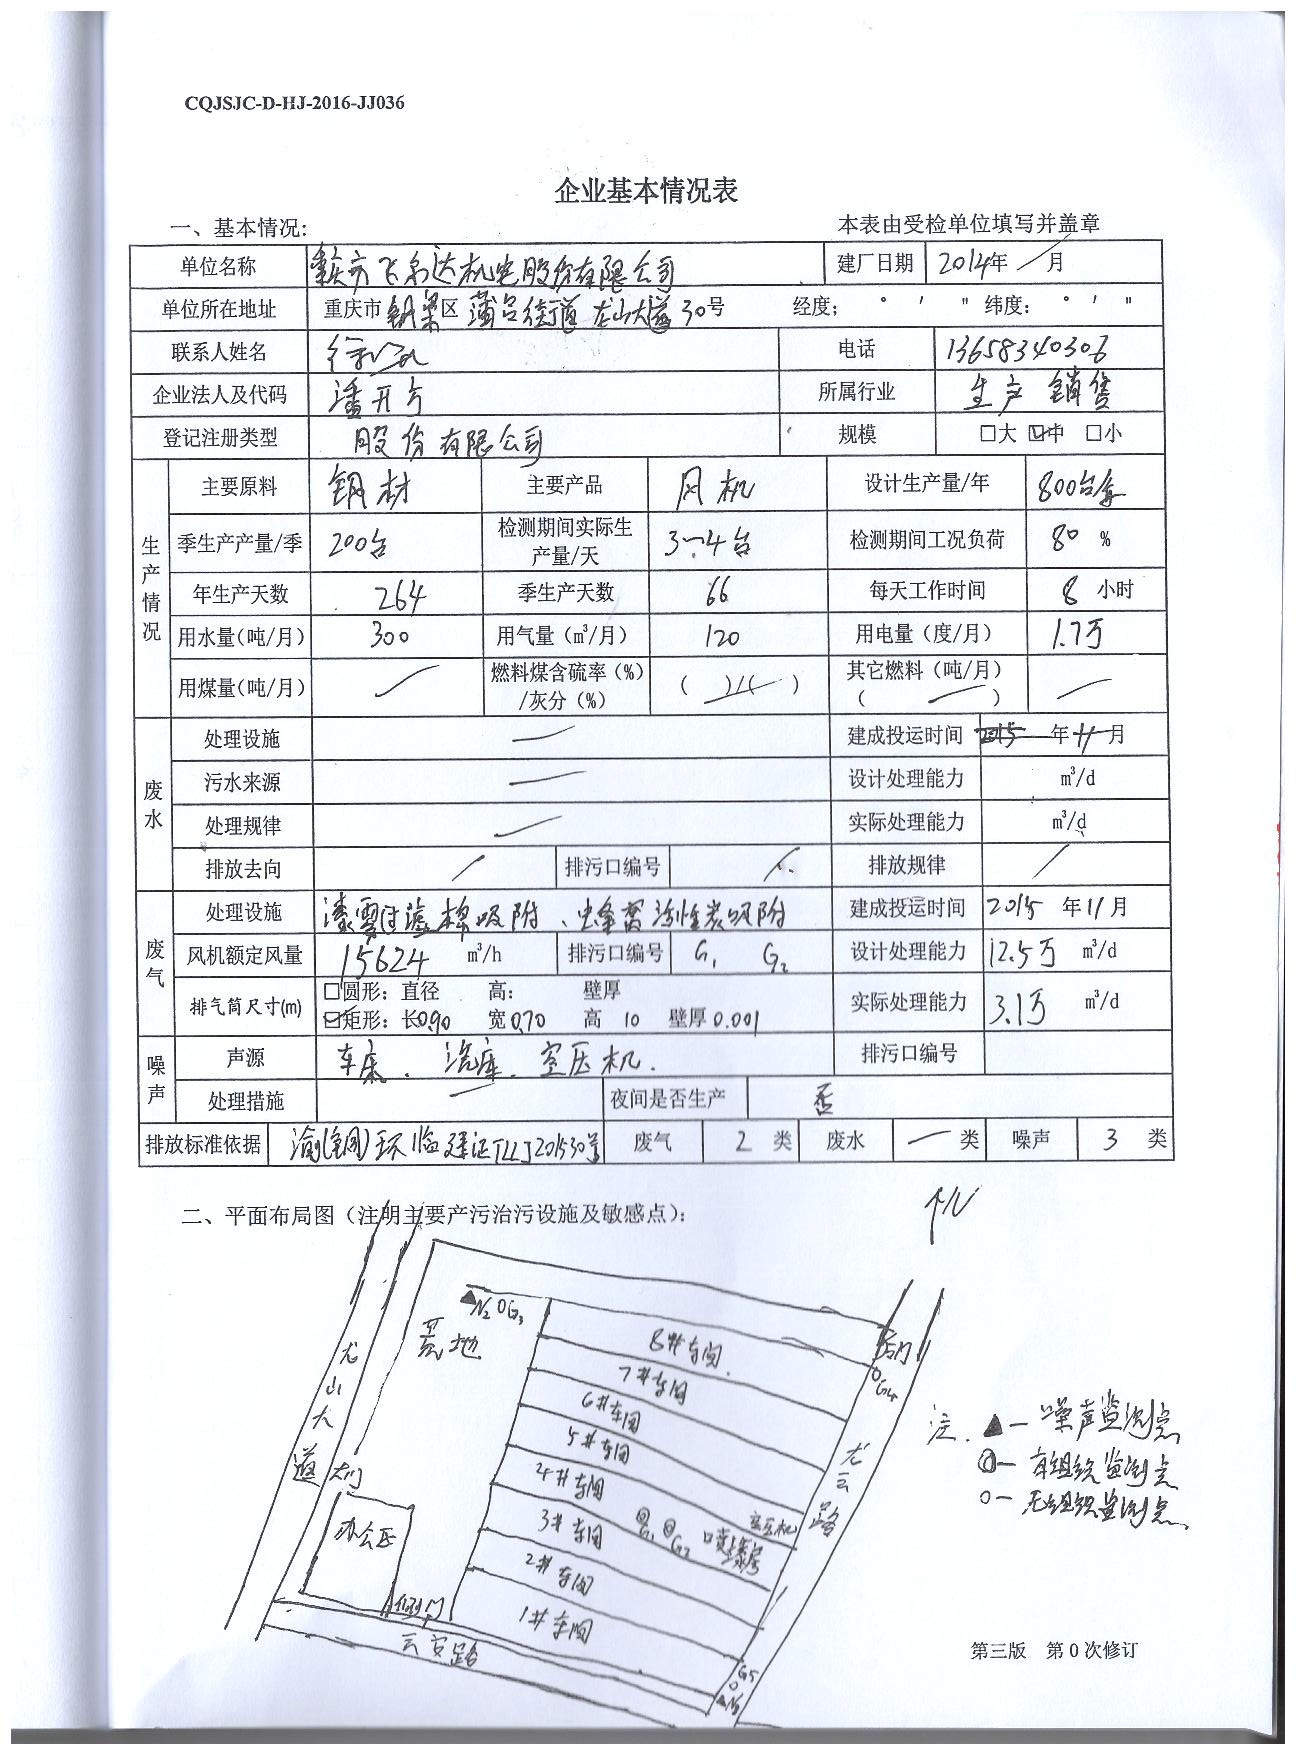 CQJSJC-D-HJ-2016-JJ036
企业基本情况表
一、基本情况: 本表由受检单位填写并盖章
单位名称 重庆市飞尔达机电股份有限公司 建厂日期 2014年 / 月
单位所在地址 重庆市铜梁区蒲吕街道龙山大道30号 经度; ° ′ " 纬度: ° ′ "
联系人姓名 徐 电话 13658340306
企业法人及代码 潘开 所属行业 生产 销售
登记注册类型 股份有限公司 规模 □大 ☑中 □小
生产情况
主要原料 钢材 主要产品 风机 设计生产量/年 800台
季生产产量/季 200台 检测期间实际生产量/天 3~4台 检测期间工况负荷 80 %
年生产天数 264 季生产天数 66 每天工作时间 8 小时
用水量(吨/月) 300 用气量(m³/月) 120 用电量(度/月) 1.7万
用煤量(吨/月) / 燃料煤含硫率(%)/灰分(%) ( )/( ) 其它燃料(吨/月) ( / ) /
废水
处理设施 / 建成投运时间 2015 年 11 月
污水来源 / 设计处理能力 m³/d
处理规律 / 实际处理能力 m³/d
排放去向 / 排污口编号 / 排放规律 /
废气
处理设施 漆雾过滤棉吸附、蜂窝活性炭吸附 建成投运时间 2015 年 11 月
风机额定风量 15624 m³/h 排污口编号 G₁ G₂ 设计处理能力 12.5万 m³/d
排气筒尺寸(m) □圆形: 直径 高: 壁厚
☑矩形: 长0.90 宽0.70 高 10 壁厚0.001 实际处理能力 3.1万 m³/d
噪声
声源 车床、 空压机. 排污口编号
处理措施 / 夜间是否生产 否
排放标准依据 渝(铜)环临 证[LL]201530号 废气 2 类 废水 / 类 噪声 3 类
二、平面布局图(注明主要产污治污设施及敏感点):
↑N
▲N₂ ○G₃
8#车间
后门
荒地
7#车间
○G4
龙山大道
6#车间
5#车间
龙云路
注. ▲— 噪声监测点
◎— 有组织监测点
○— 无组织监测点
大门
4#车间
办公区
3#车间
◎G₁ ◎G₂
□喷漆房
空压机
2#车间
侧门
1#车间
云安路
G5
○
▲N
第三版 第0次修订